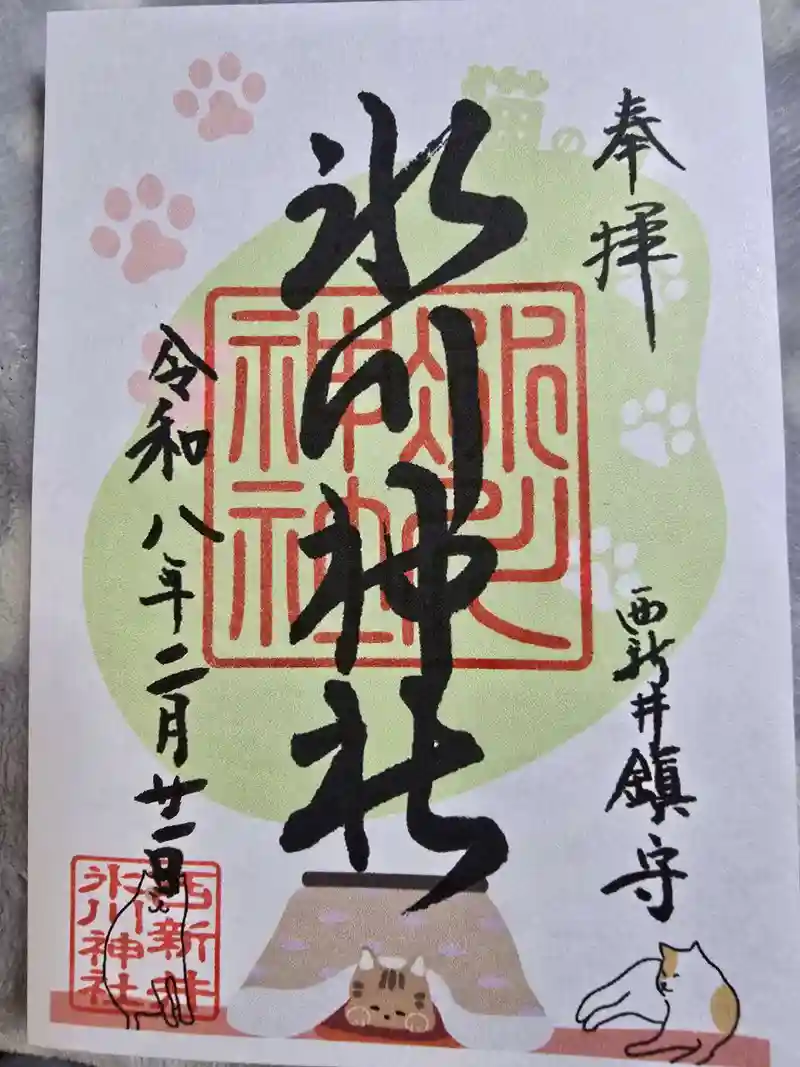 奉拝
西新井鎮守
猫の
氷川神社
氷川
神社
令和八年二月廿一日
西新井
氷川神社